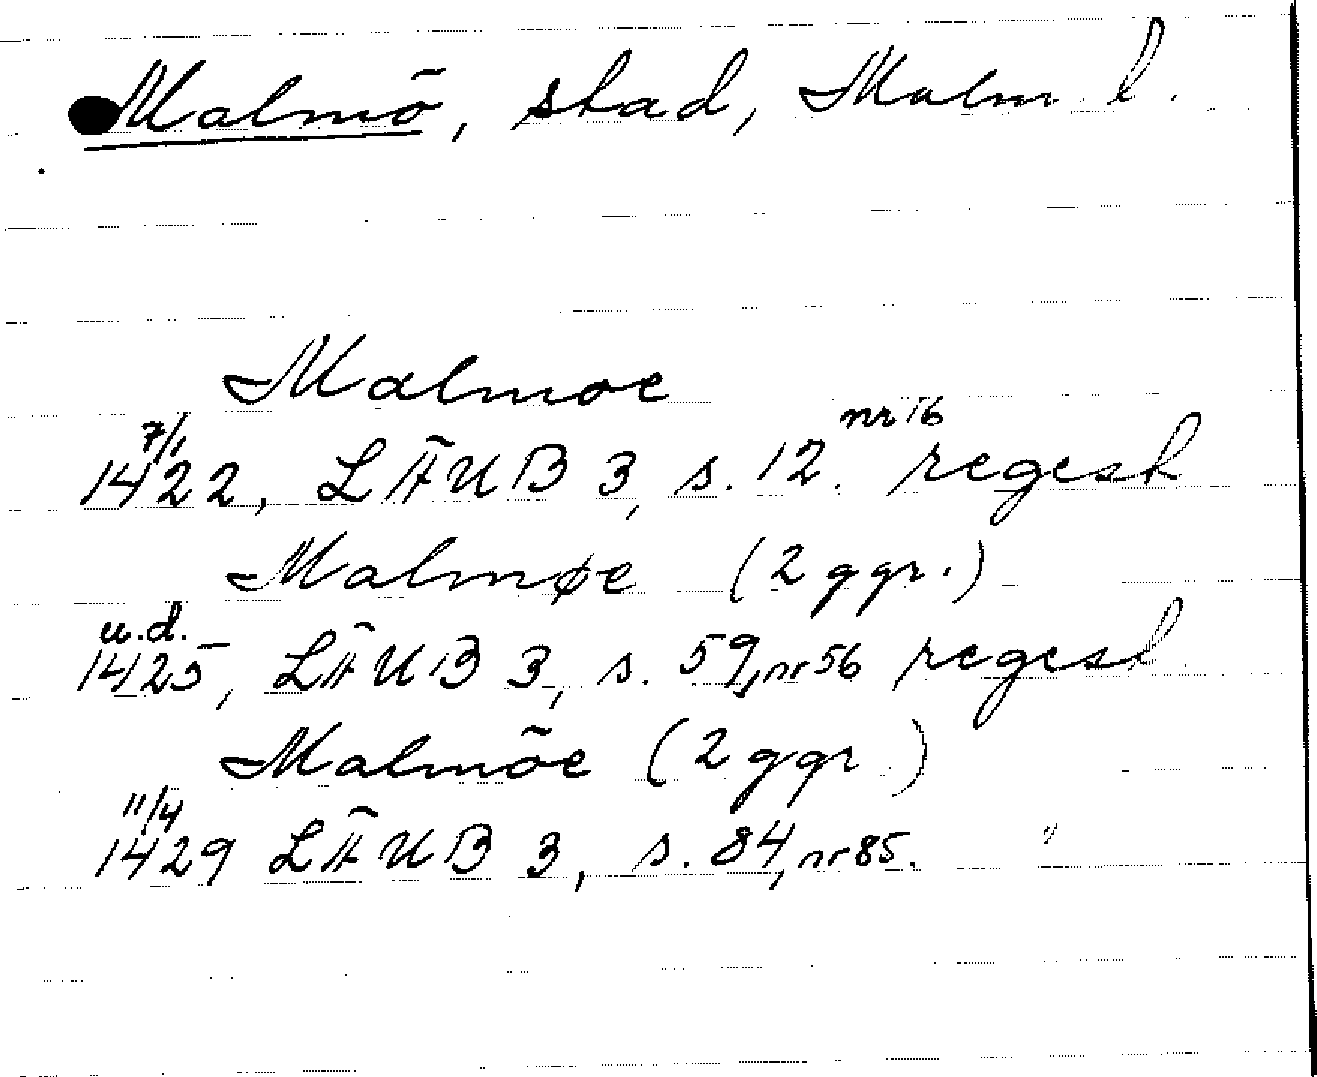 Malmö, stad, Malm. l.
Malmoe
7/1 nr 16
1422, LÄUB 3, s. 12. regest
Malmøe (2 ggr.)
u.d.
1425, LÄUB 3, s. 59, nr 56 regest
Malmöe (2 ggr.)
11/4
1429 LÄUB 3, s. 84, nr 85. "